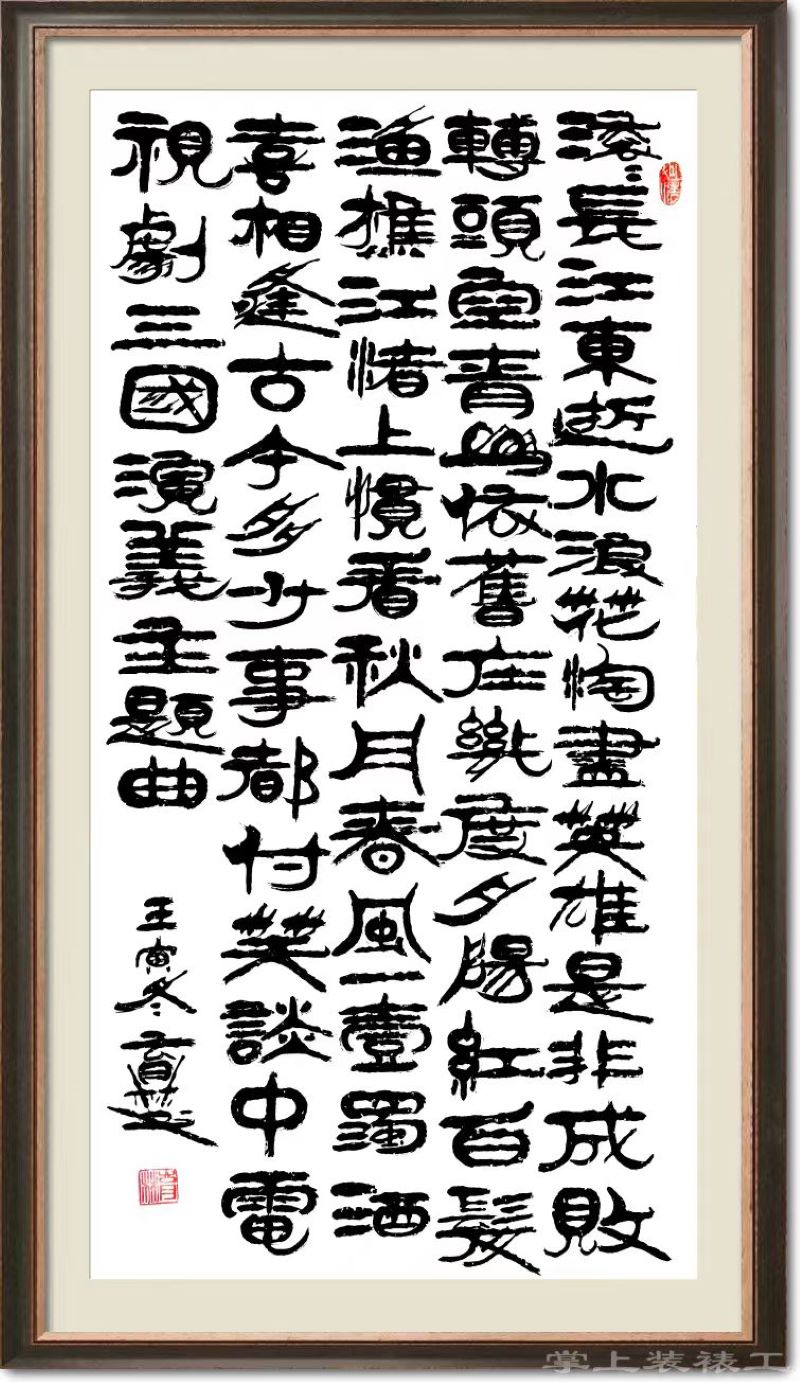 滾〻長江東逝水浪花淘盡英雄是非成敗
轉頭空青山依舊在幾度夕陽紅百髮
漁樵江渚上慣看秋月春風一壺濁酒
喜相逢古今多少事都付笑談中電
視劇三國演義主題曲
壬寅冬
掌上装裱工